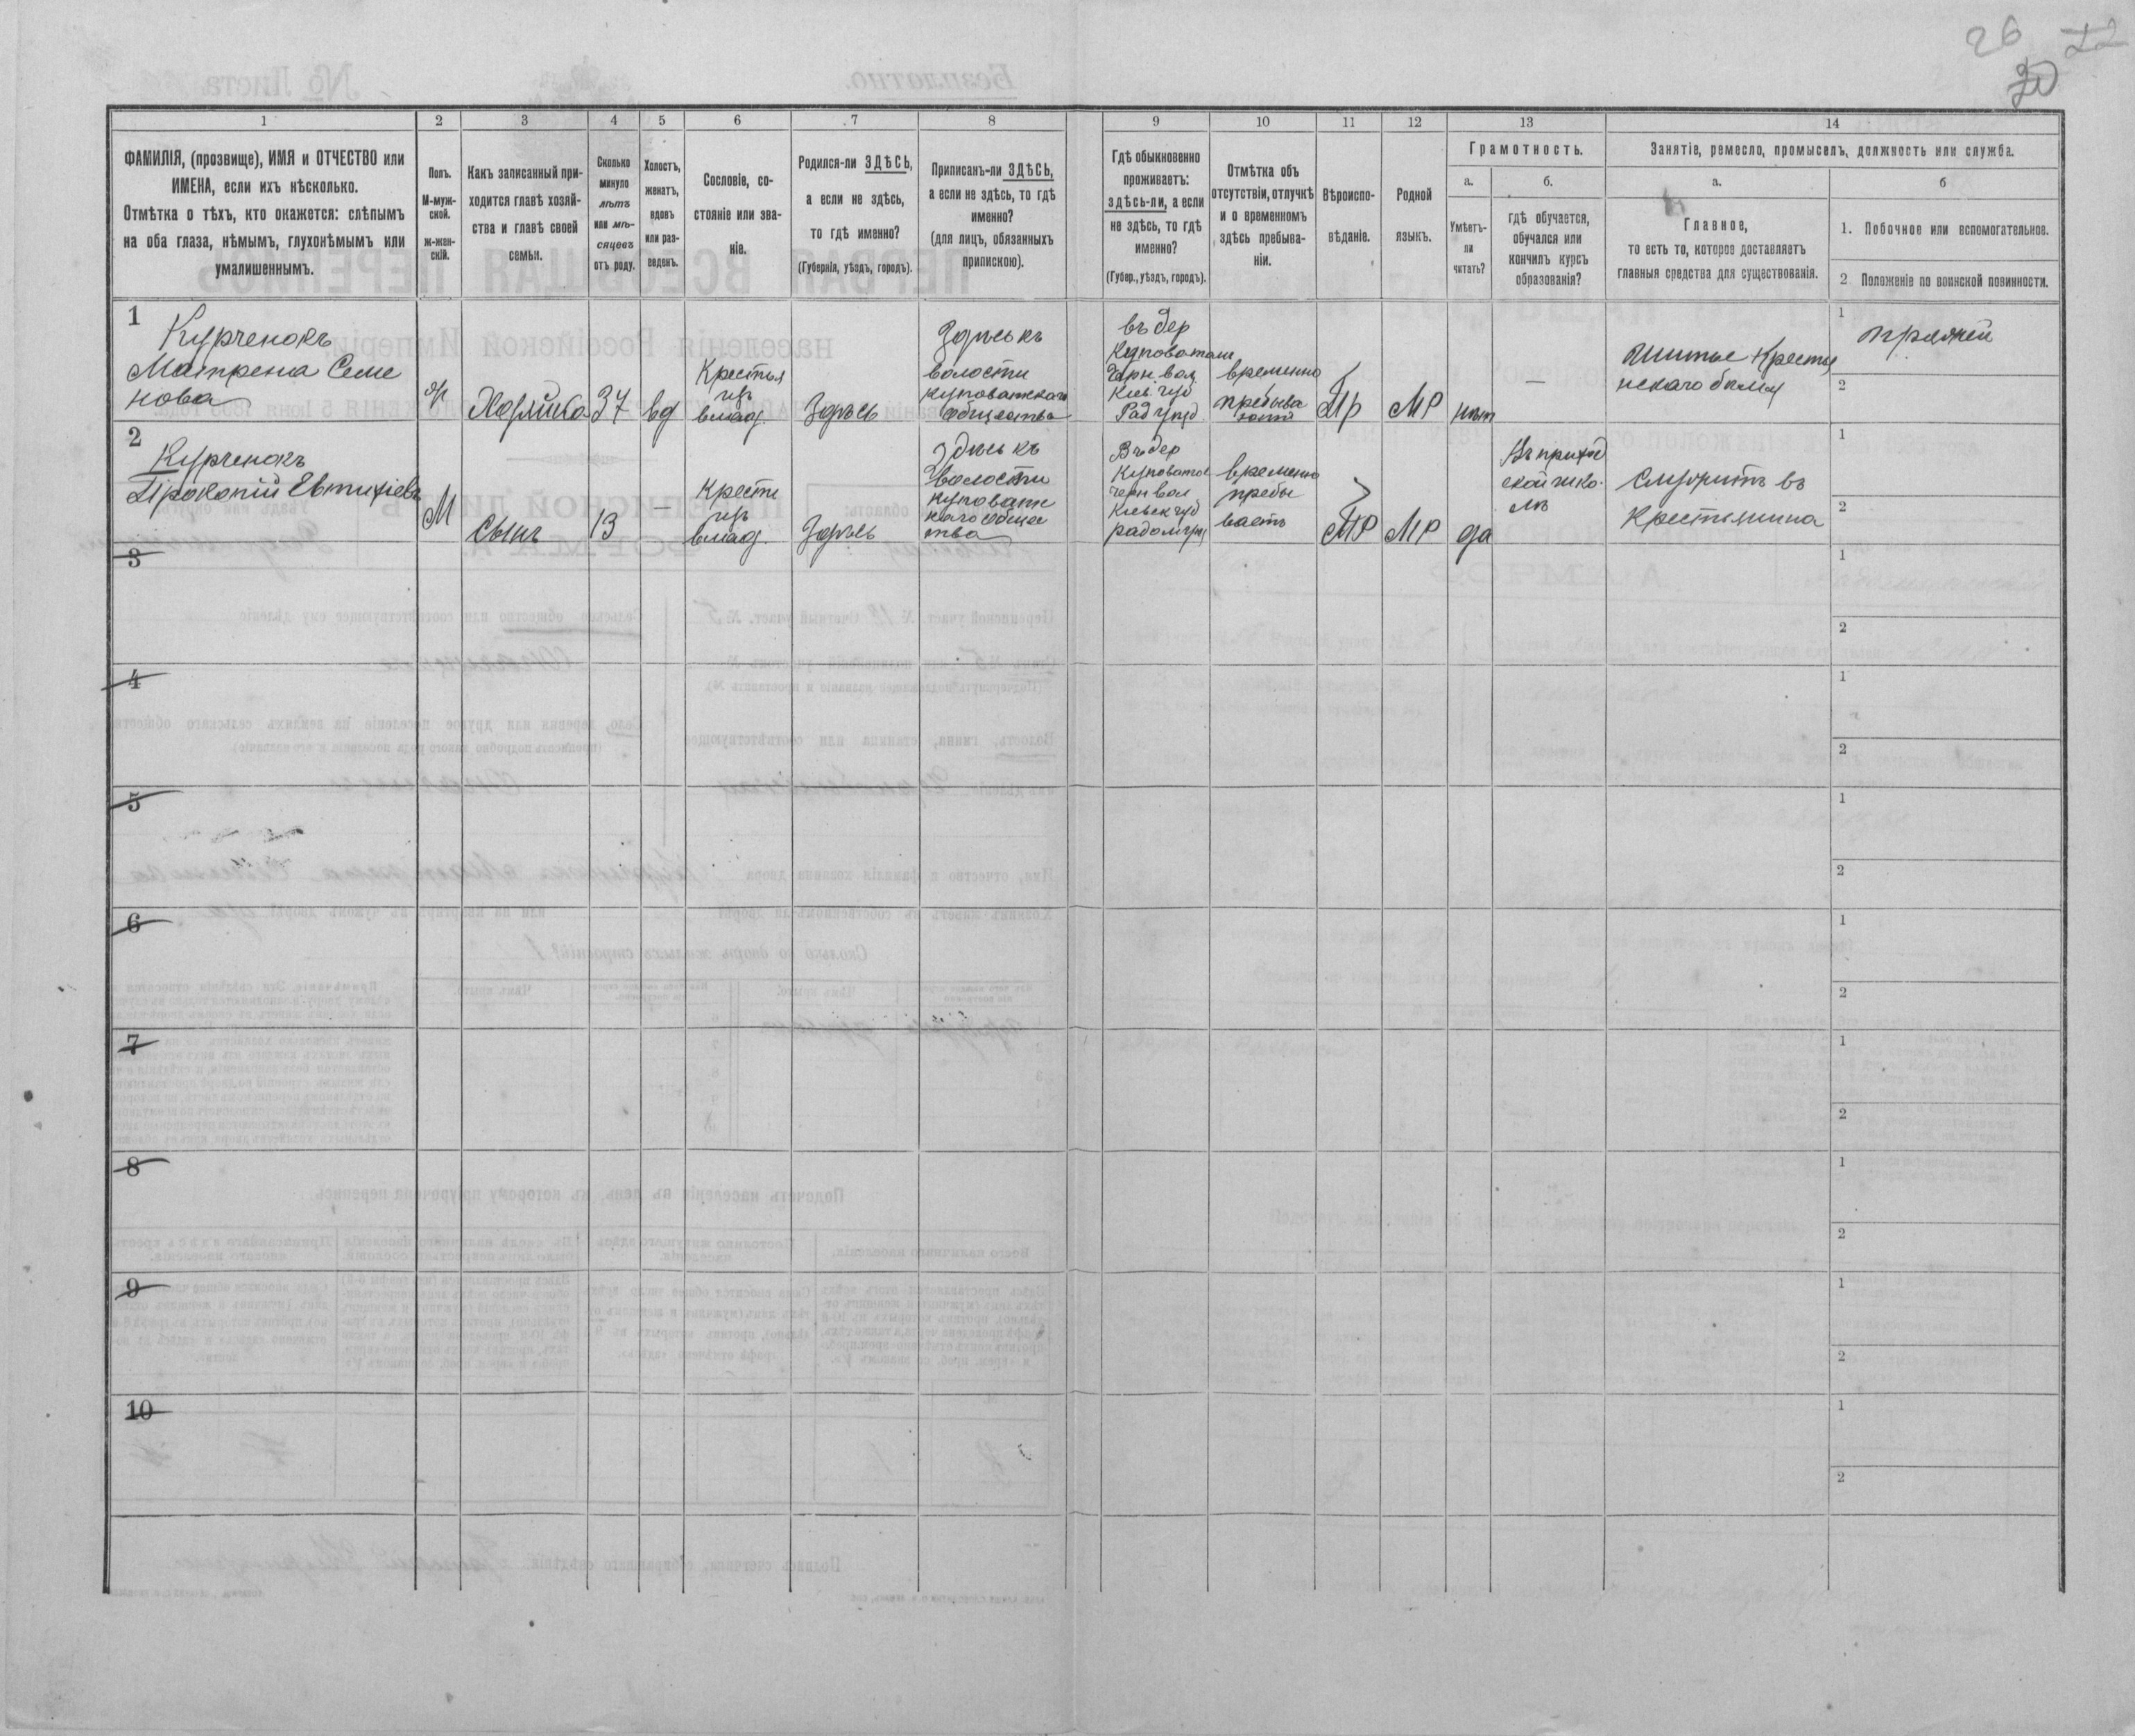 26 22
20
1 2 3 4 5 6 7 8 9 10 11 12 13 14
ФАМИЛІЯ, (прозвище), ИМЯ и ОТЧЕСТВО или
ИМЕНА, если ихъ нѣсколько.
Отмѣтка о тѣхъ, кто окажется: слѣпымъ
на оба глаза, нѣмымъ, глухонѣмымъ или
умалишеннымъ.
Полъ.
М-муж-
ской.
ж-жен-
скій.
Какъ записанный при-
ходится главѣ хозяй-
ства и главѣ своей
семьи.
Сколько
минуло
лѣтъ
или мѣ-
сяцевъ
отъ роду.
Холостъ,
женатъ,
вдовъ
или раз-
веденъ.
Сословіе, со-
стояніе или зва-
ніе.
Родился-ли ЗДѢСЬ,
а если не здѣсь,
то гдѣ именно?
(Губернія, уѣздъ, городъ).
Приписанъ-ли ЗДѢСЬ,
а если не здѣсь, то гдѣ
именно?
(для лицъ, обязанныхъ
припискою).
Гдѣ обыкновенно
проживаетъ:
здѣсь-ли, а если
не здѣсь, то гдѣ
именно?
(Губер., уѣздъ, городъ).
Отмѣтка объ
отсутствіи, отлучкѣ
и о временномъ
здѣсь пребыва-
ніи.
Вѣроиспо-
вѣданіе.
Родной
языкъ.
Грамотность.
а.
Умѣетъ-
ли
читать?
б.
гдѣ обучается,
обучался или
кончилъ курсъ
образованія?
Занятіе, ремесло, промыселъ, должность или служба.
а.
Главное,
то есть то, которое доставляетъ
главныя средства для существованія.
б
1. Побочное или вспомогательное.
2 Положеніе по воинской повинности.
1
Курченокъ
Матрена Семе
нова
ж
Хозяйка
37
вд
Крестья
изъ
влад.
Здѣсь
Здѣсь къ
волости
куповатскаго
общества
въ дер
Куповатом
Черн. вол
Киев. губ
Рад уѣзд
временно
пребыва
етъ
Пр
МР
нѣт
—
Шитье Крестья
нскаго белья
1 пряжей
2
2
Курченокъ
Прокопій Евтихіевъ
М
Сынъ
13
—
Крестя
изъ
влад.
Здѣсь
Здѣсь къ
волости
куповатс
каго общес
тва
Въ дер
Куповатом
черн вол
Киевск губ
радом уѣз
временно
пребы
ваетъ
ПР
МР
да
Въ приход
ской шко-
лѣ
Служитъ въ
Крестьянина
1
2
3
1
2
4
1
2
5
1
2
6
1
2
7
1
2
8
1
2
9
1
2
10
1
2